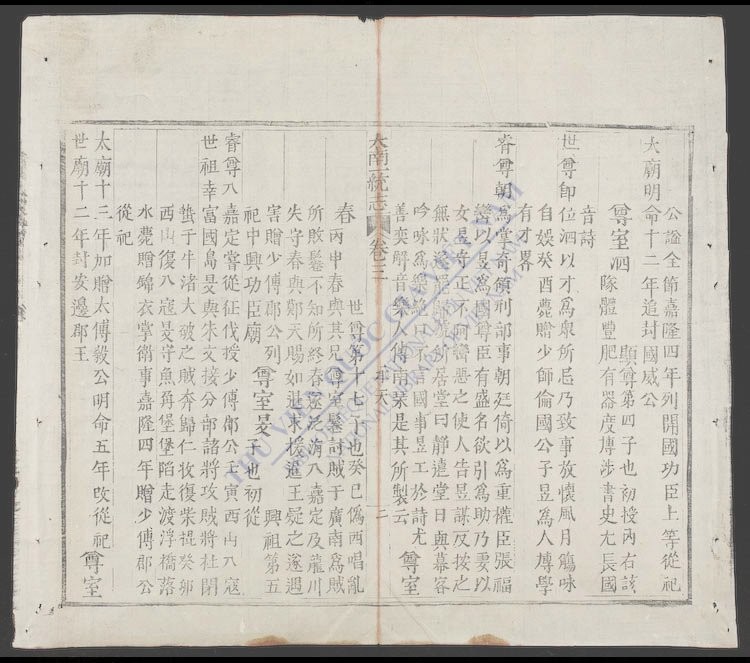 公謚全節嘉隆四年列開國功臣上等從祀
太廟明命十二年追封國威公
尊室泗 顯尊第四子也初授內右該
隊體豐肥有器度博涉書史尤長國
音詩
世尊即位泗以才為衆所忌乃致事放懷風月觴咏
自娛癸酉薨贈少師倫國公子昱為人博學
有才畧
睿尊朝為掌奇領刑部事朝廷倚以為重權臣張福
巒以昱為國尊臣有盛名欲引為助乃妻以
女昱守正不阿巒惡之使人告昱謀反按之
無狀遂罷職昱所居堂曰靜遠堂日與幕客
吟咏為樂絕口不言國事昱工於詩尤
善奕解音樂人傳南琹是其所製云 尊室
大南一統志 卷三 三
春 世尊第十七子也癸巳偽西唱亂
丙申春與其兄尊室鬈討賊于廣南為賊
所敗鬈不知所終春還泛海入嘉定及龍川
失守春與鄭天賜如暹求援暹王疑之遂遇
害贈少傅郡公列
祀中興功臣廟 尊室旻 興祖第五
子也初從
睿尊入嘉定嘗從征伐授少傅郡公壬寅西山入寇
世祖幸富國島旻與朱文接分部諸將攻賊將杜閒
蟄于牛渚大破之賊奔歸仁牧復柴棍癸卯
西山復入寇旻守魚角堡堡陷走渡浮橋落
水薨贈錦衣掌衛事嘉隆四年贈少傅郡公
從祀
太廟十三年加贈太傅毅公明命五年改從祀
世廟十二年封安邊郡王 尊室
THƯ VIỆN QUỐC GIA VIỆT NAM
NATIONAL LIBRARY OF VIETNAM